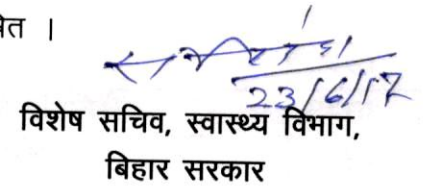 ।
23/6/17
विशेष सचिव, स्वास्थ्य विभाग,
बिहार सरकार